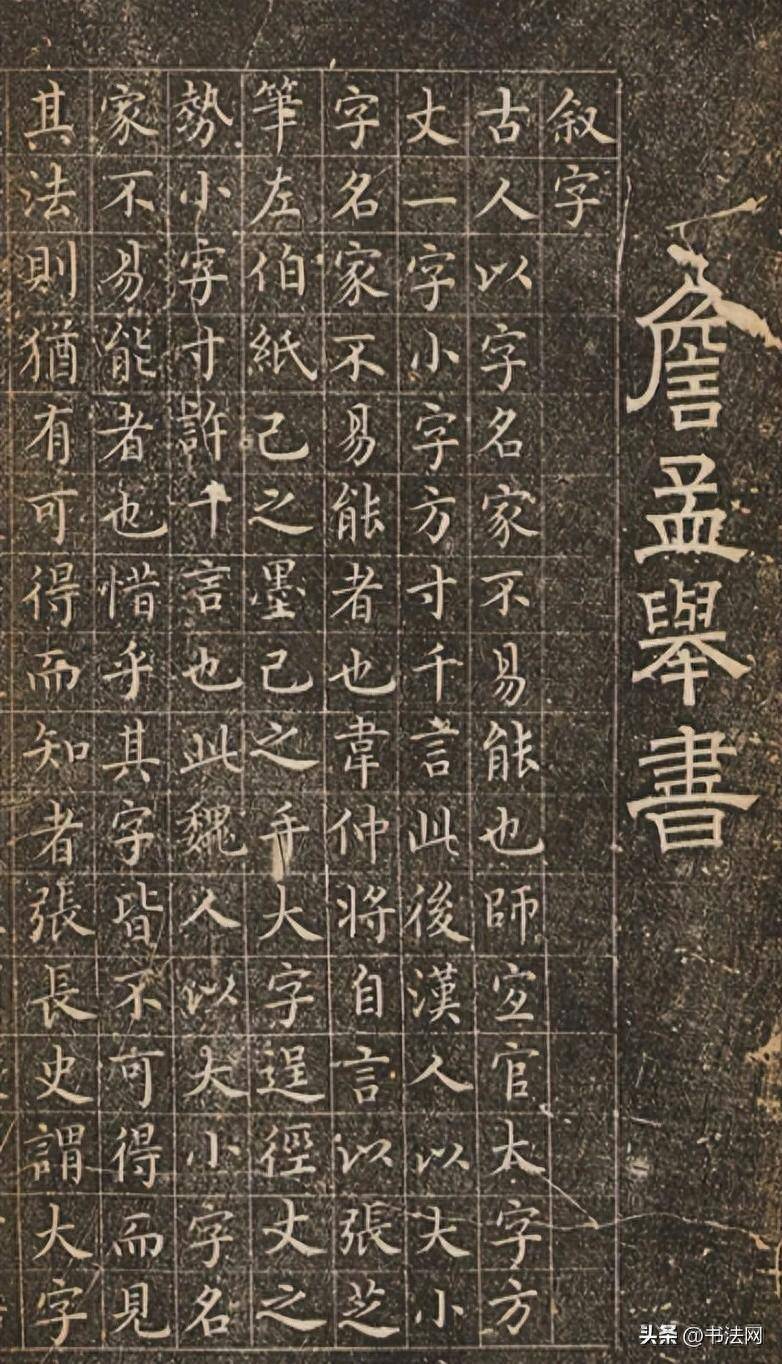 詹孟舉書
叙字
古人以字名家不易能也師宜官大字方
丈一字小字方寸千言此後漢人以大小
字名家不易能者也韋仲将自言以張芝
筆左伯紙己之墨己之手大字逞徑丈之
勢小字寸許千言也此魏人以大小字名
家不易能者也惜乎其字皆不可得而見
其法則猶有可得而知者張長史謂大字
头条 @书法网